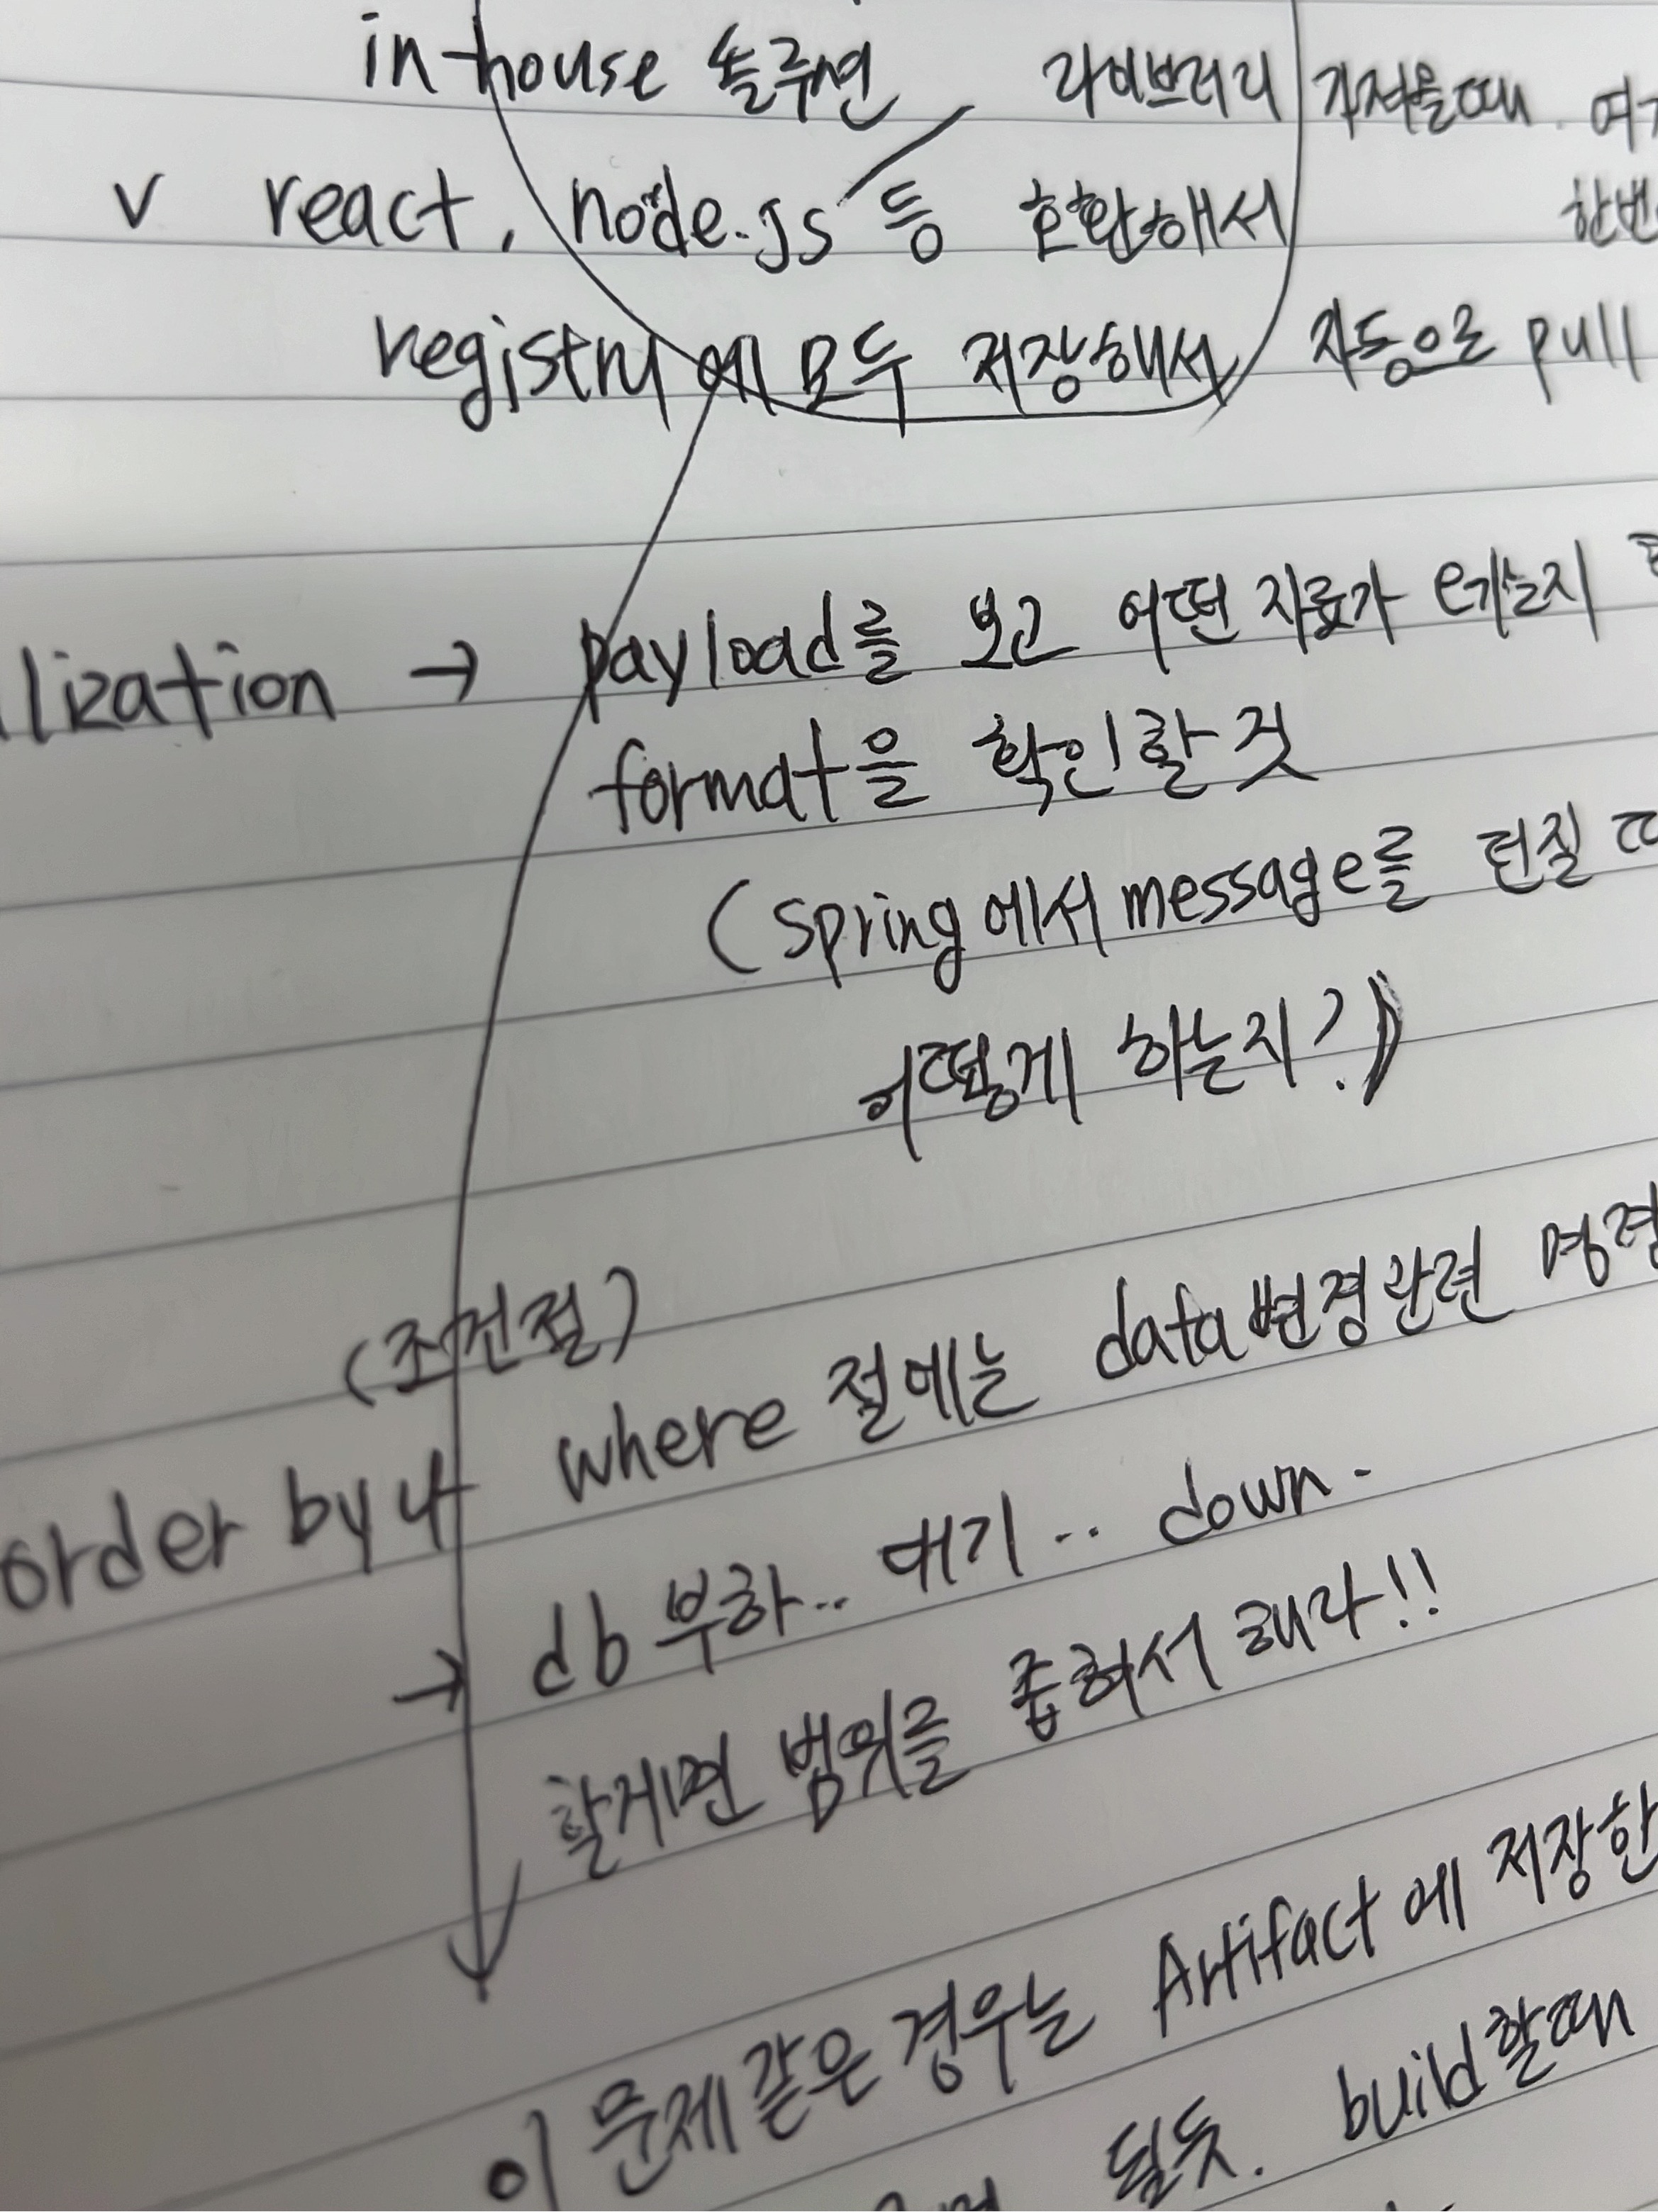 in-house 솔루션 라이브러리 가져올때
v react, node.js 등 호환해서
registry에 모두 저장해서 자동으로 pull
lization → payload를 보고 어떤 자료가 는지
format을 확인할 것
(Spring에서 message를 던질
어떻게 하는지?)
(조건절)
order by나 where 절에는 data변경관련
→ db 부하.. 대기.. down.
할거면 범위를 좁혀서 해라!!
이 문제같은 경우는 Artifact에 저장한
될듯. build할때